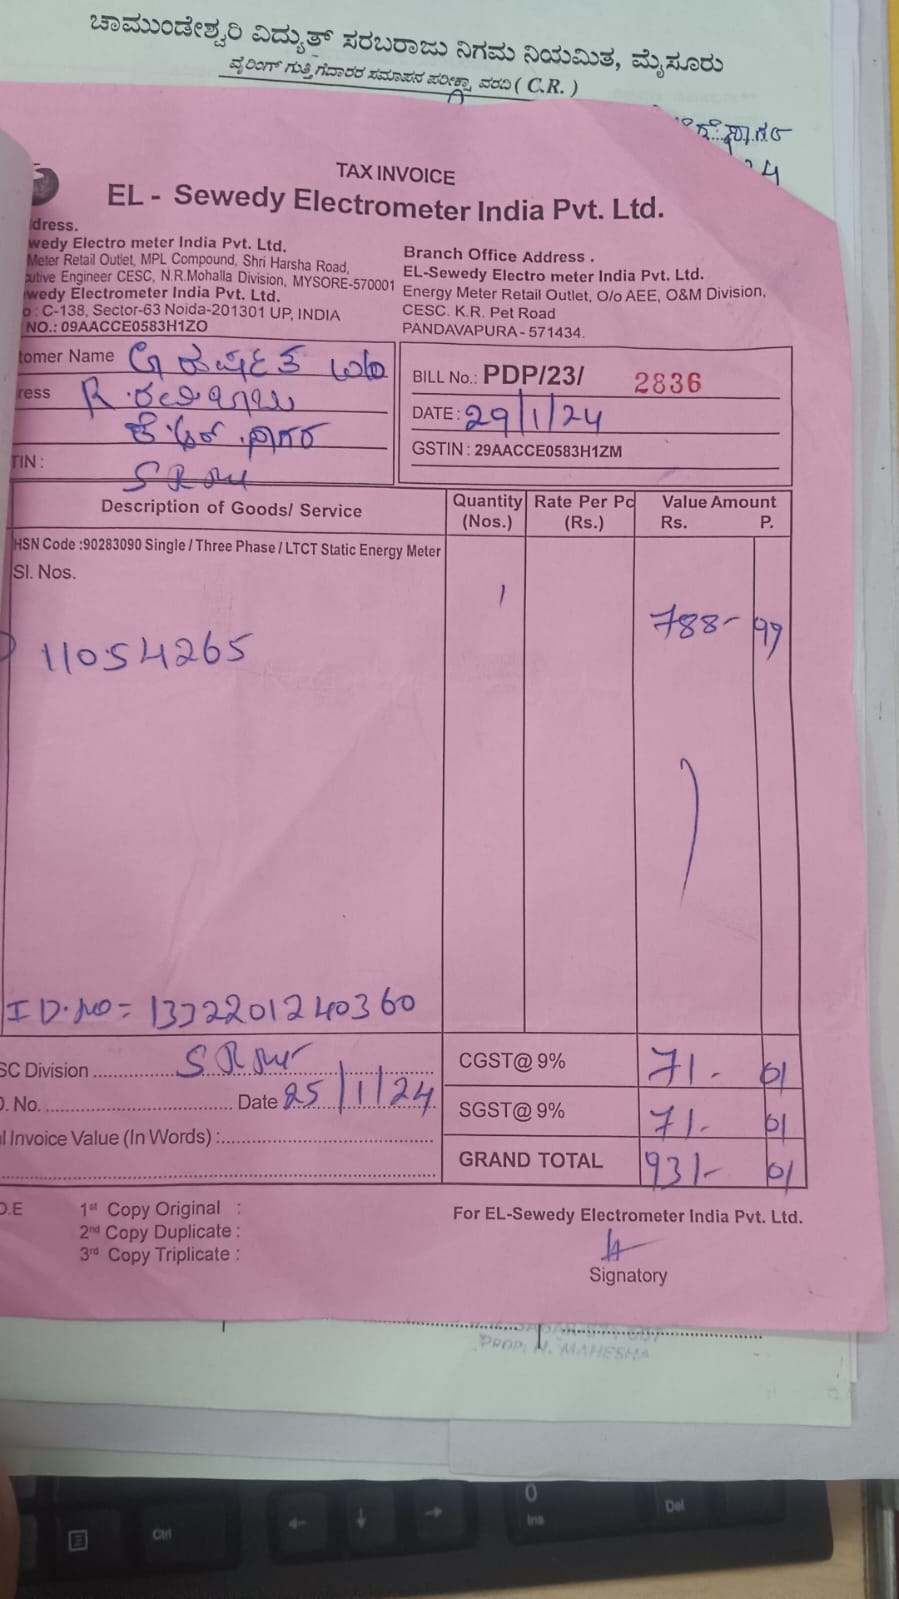 ಚಾಮುಂಡೇಶ್ವರಿ ವಿದ್ಯುತ್ ಸರಬರಾಜು ನಿಗಮ ನಿಯಮಿತ, ಮೈಸೂರು
ವೈರಿಂಗ್ ಗುತ್ತಿಗೆದಾರರ ಸಮಾಪನ ಪರೀಕ್ಷಾ ವರದಿ ( C.R. )
TAX INVOICE
EL - Sewedy Electrometer India Pvt. Ltd.
dress.
wedy Electro meter India Pvt. Ltd.
Meter Retail Outlet, MPL Compound, Shri Harsha Road,
utive Engineer CESC, N.R.Mohalla Division, MYSORE-570001
wedy Electrometer India Pvt. Ltd.
: C-138, Sector-63 Noida-201301 UP, INDIA
NO.: 09AACCE0583H1ZO
Branch Office Address .
EL-Sewedy Electro meter India Pvt. Ltd.
Energy Meter Retail Outlet, O/o AEE, O&M Division,
CESC. K.R. Pet Road
PANDAVAPURA - 571434.
tomer Name
ress
TIN :
BILL No.: PDP/23/ 2836
DATE : 29/1/24
GSTIN : 29AACCE0583H1ZM
Description of Goods/ Service Quantity (Nos.) Rate Per Pc (Rs.) Value Amount Rs. P.
HSN Code :90283090 Single / Three Phase / LTCT Static Energy Meter
Sl. Nos.
1 788- 99
11054265
ID.NO= 1332201240360
SC Division
CGST@ 9% 71- 01
No. Date 25/1/24
SGST@ 9% 71- 01
l Invoice Value (In Words) :
GRAND TOTAL 931- 01
1st Copy Original :
2nd Copy Duplicate :
3rd Copy Triplicate :
For EL-Sewedy Electrometer India Pvt. Ltd.
Signatory
PROP: N. MAHESHA
0
Ins
Del
Ctrl